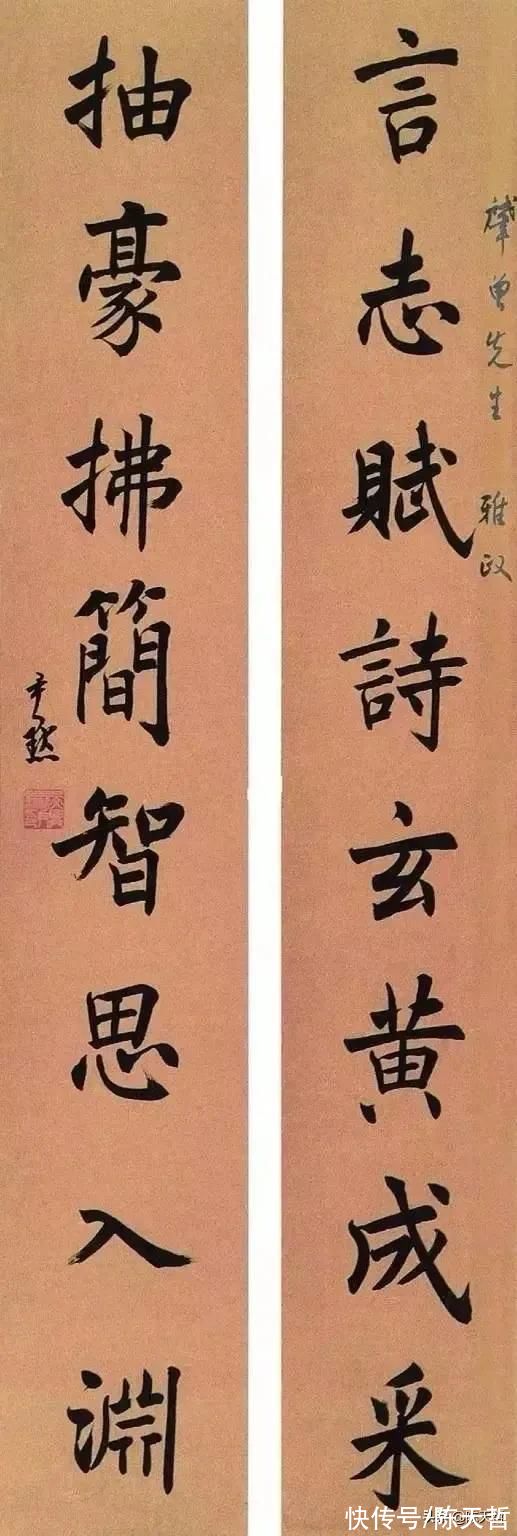 言志賦詩玄黄成采
曾先生 雅政
抽豪拂簡智思入淵
尹默
快传号/陈天哲